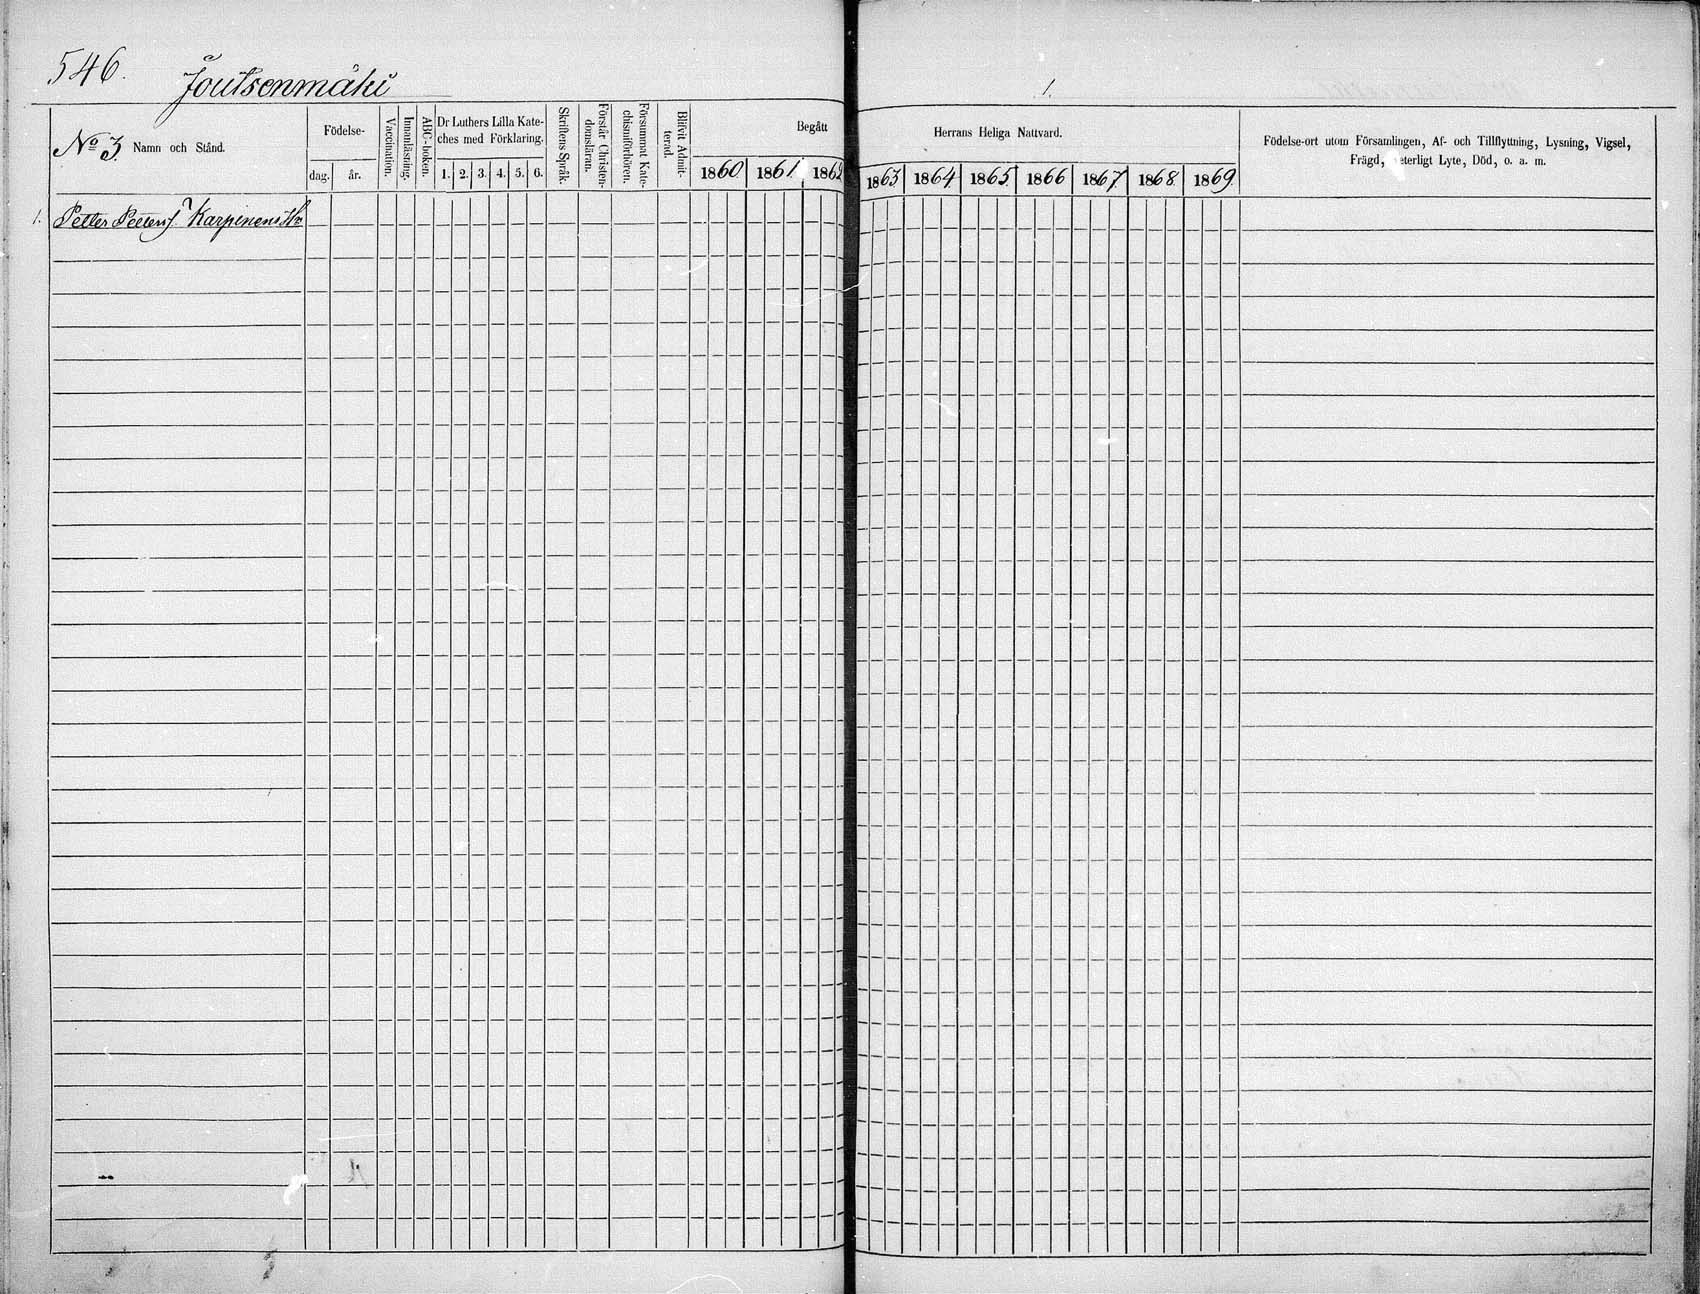 546.
Joutsenmäki
1.
No 3. Namn och Stånd.
Födelse-
dag. år.
Vaccination.
Innanläsning.
ABC-boken.
Dr Luthers Lilla Kate-
ches med Förklaring.
1. 2. 3. 4. 5. 6.
Skriftens Språk.
Förstår Christen-
domsläran.
Försummat Kate-
chismiförhören.
Blifvit Admit-
terad.
Begått
1860 1861 1862
Herrans Heliga Nattvard.
1863 1864 1865 1866 1867 1868 1869
Födelse-ort utom Församlingen, Af- och Tillflyttning, Lysning, Vigsel,
Frägd, eterligt Lyte, Död, o. a. m.
1. Petter Petters. Karpinens